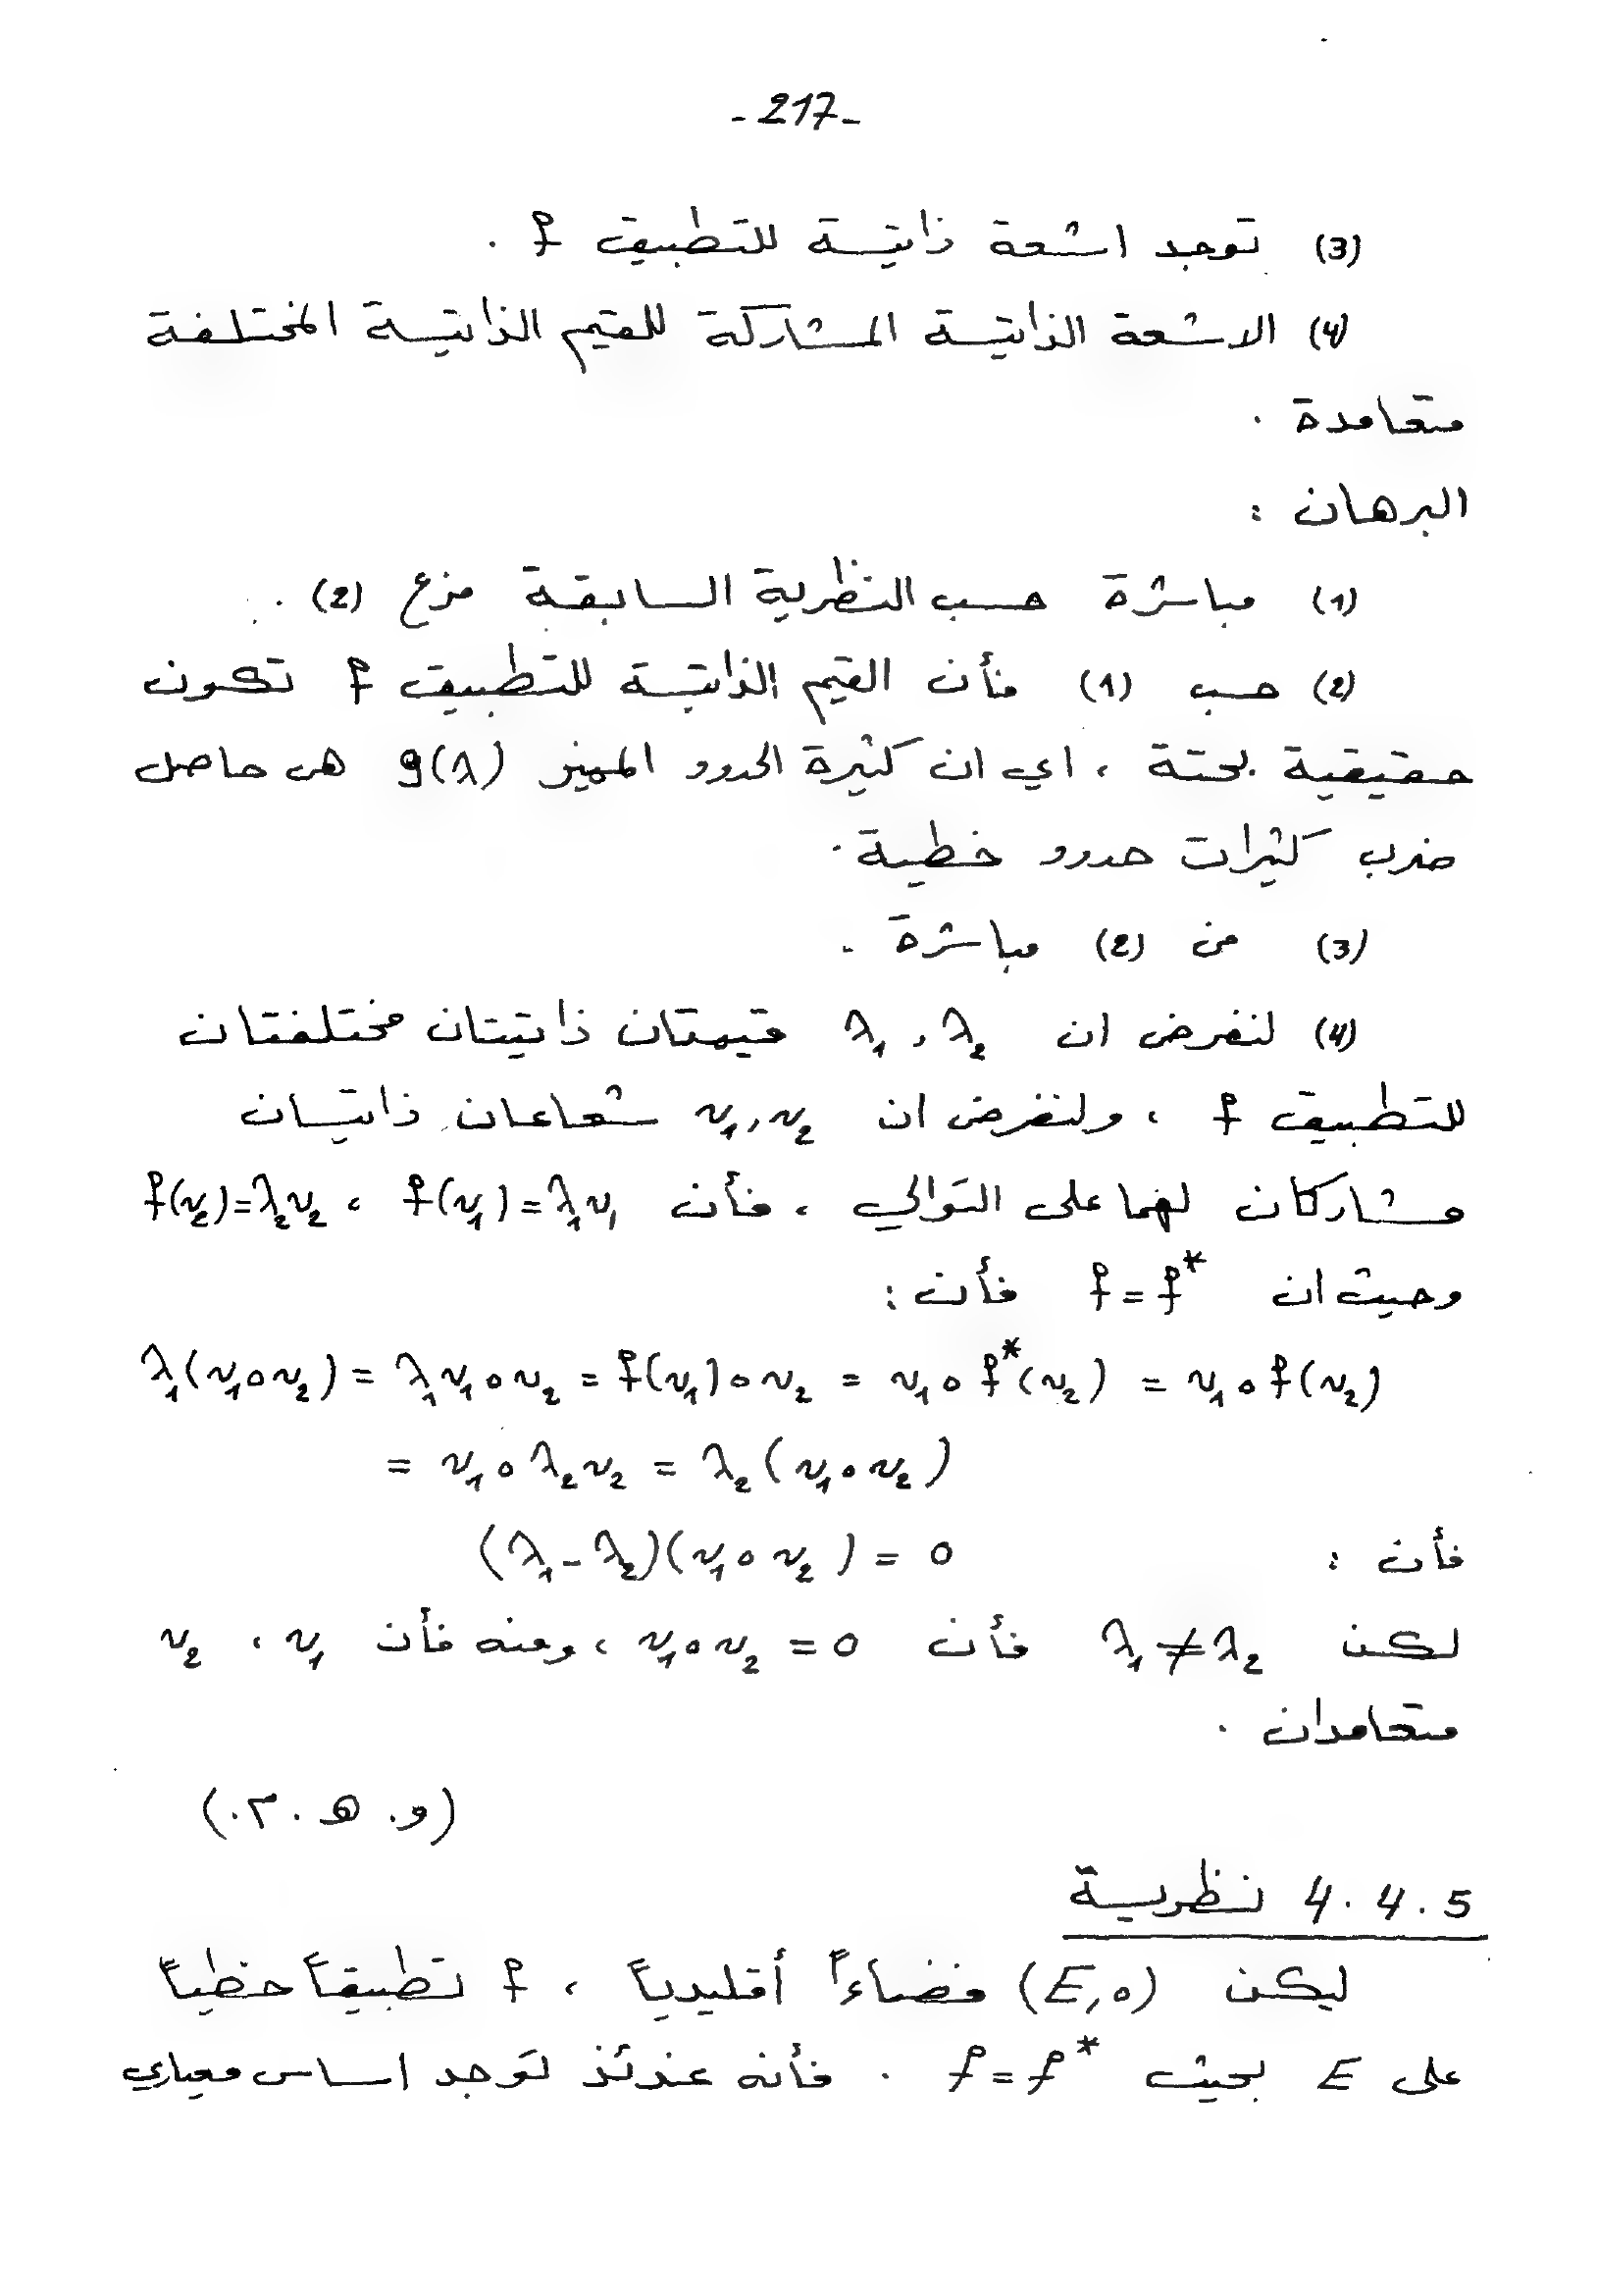 - 217 -
(3) توجد اشعة ذاتية للتطبيق f .
(4) الاشعة الذاتية المشاركة للقيم الذاتية المختلفة
متعامدة .
البرهان :
(1) مباشرة حسب النظرية السابقة فرع (2) .
(2) حسب (1) فأن القيم الذاتية للتطبيق f تكون
حقيقية بحتة ، اي ان كثيرة الحدود المميز g(λ) هي حاصل
ضرب كثيرات حدود خطية .
(3) من (2) مباشرة .
(4) لنفرض ان λ₁ , λ₂ قيمتان ذاتيتان مختلفتان
للتطبيق f ، ولنفرض ان v₁, v₂ شعاعان ذاتيان
مشاركان لهما على التوالي ، فأن f(v₁)=λ₁v₁ ، f(v₂)=λ₂v₂
وحيث ان f = f* فأن :
λ₁(v₁∘v₂) = λ₁v₁∘v₂ = f(v₁)∘v₂ = v₁∘f*(v₂) = v₁∘f(v₂)
= v₁∘λ₂v₂ = λ₂(v₁∘v₂)
فأن : (λ₁-λ₂)(v₁∘v₂) = 0
لكن λ₁≠λ₂ فأن v₁∘v₂ = 0 ، ومنه فأن v₁ ، v₂
متعامدان .
(و. هـ . م .)
4 . 4 . 5 نظرية
ليكن (E,∘) فضاءً أقليدياً ، f تطبيقاً خطياً
على E بحيث f = f* . فأنه عندئذ توجد اساس معياري